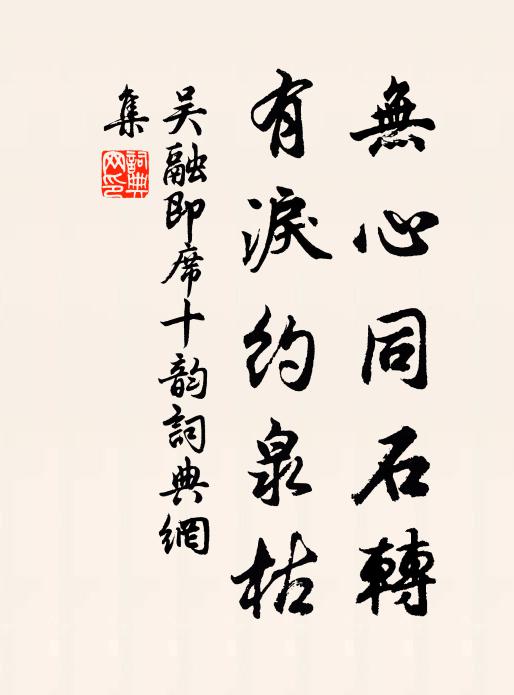 無心同石轉
有淚約泉枯
吳融即席十韵詞典網
集
詞典
网印